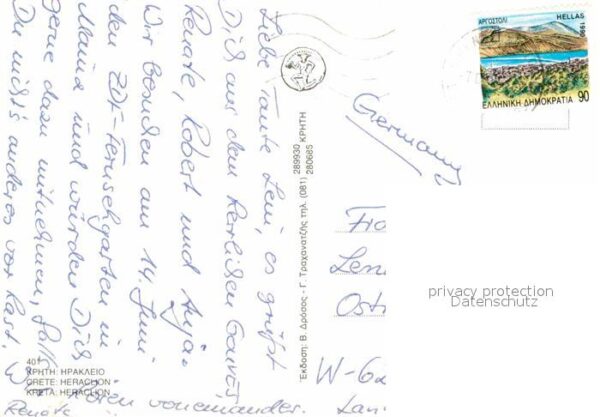 Liebe Tante Leni, es grüßt
Dich aus dem herrlichen Gouves
Renate, Robert und Anja.
Wir besuchen am 14. Juni
den ZDF-Fernsehgarten in
Mainz und würden Dich
gerne dazu mitnehmen, falls
Du nichts anderes vor hast. W
hören voneinander.
Renate
401
ΚΡΗΤΗ: ΗΡΑΚΛΕΙΟ
CRETE: HERACLION
KRETA: HERACLION
Έκδοση: Β. Δρόσος - Γ. Τραχανατζής τηλ. (081) 289930 ΚΡΗΤΗ
280685
ΑΡΓΟΣΤΟΛΙ
HELLAS
1990
ΕΛΛΗΝΙΚΗ ΔΗΜΟΚΡΑΤΙΑ 90
Germany
Len
Ost
W-62
Lan
privacy protection
Datenschutz